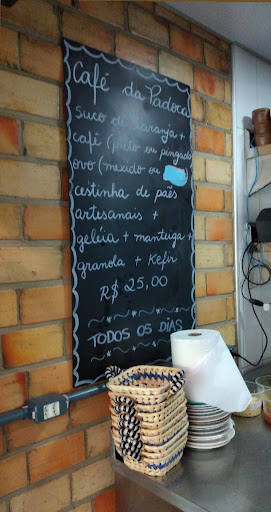 Café da Padoca
suco de laranja +
café (puro ou pingado
ovo (mexido ou
cestinha de pães
artesanais +
geléia + manteiga +
granola + Kefir
R$ 25,00
TODOS OS DIAS